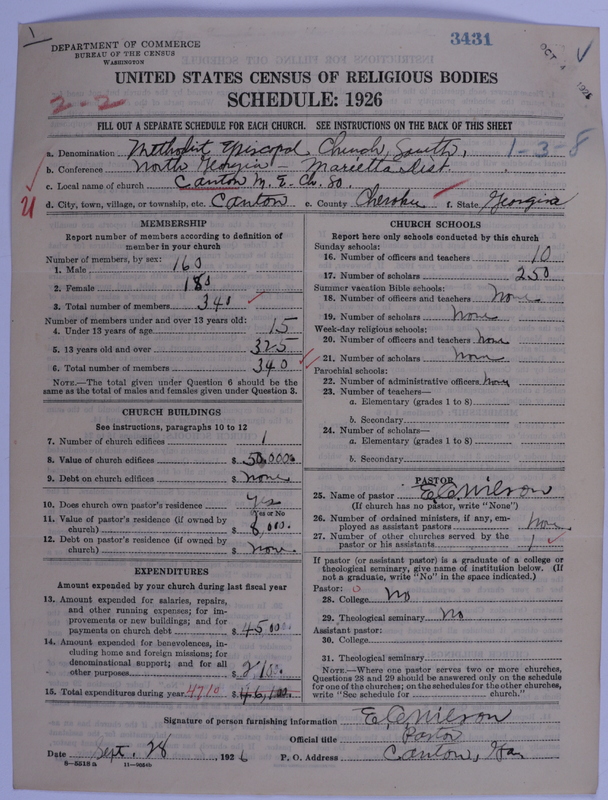 1
3431
DEPARTMENT OF COMMERCE
BUREAU OF THE CENSUS
WASHINGTON
OCT
1926
UNITED STATES CENSUS OF RELIGIOUS BODIES
2-2
SCHEDULE: 1926
FILL OUT A SEPARATE SCHEDULE FOR EACH CHURCH. SEE INSTRUCTIONS ON THE BACK OF THIS SHEET
a. Denomination Methodist Episcopal Church, South, 1-3-8
b. Conference North Georgia - Marietta Dist.
c. Local name of church Canton M. E. Ch. So.
d. City, town, village, or township, etc. Canton e. County Cherokee f. State Georgia
MEMBERSHIP
Report number of members according to definition of
member in your church
Number of members, by sex:
1. Male 160
2. Female 180
3. Total number of members 340
Number of members under and over 13 years old:
4. Under 13 years of age 15
5. 13 years old and over 325
6. Total number of members 340
NOTE.—The total given under Question 6 should be the
same as the total of males and females given under Question 3.
CHURCH BUILDINGS
See instructions, paragraphs 10 to 12
7. Number of church edifices 1
8. Value of church edifices $ 50,000
9. Debt on church edifices $ none
10. Does church own pastor's residence Yes
Yes or No
11. Value of pastor's residence (if owned by
church) $ 8,000.
12. Debt on pastor's residence (if owned by
church) $ none.
EXPENDITURES
Amount expended by your church during last fiscal year
13. Amount expended for salaries, repairs,
and other running expenses; for im-
provements or new buildings; and for
payments on church debt $ 4500
14. Amount expended for benevolences, in-
cluding home and foreign missions; for
denominational support; and for all
other purposes $
15. Total expenditures during year 4710 $
CHURCH SCHOOLS
Report here only schools conducted by this church
Sunday schools:
16. Number of officers and teachers 10
17. Number of scholars 250
Summer vacation Bible schools:
18. Number of officers and teachers None
19. Number of scholars None
Week-day religious schools:
20. Number of officers and teachers None
21. Number of scholars None
Parochial schools:
22. Number of administrative officers None
23. Number of teachers—
a. Elementary (grades 1 to 8)
b. Secondary
24. Number of scholars—
a. Elementary (grades 1 to 8)
b. Secondary
PASTOR
25. Name of pastor E. C. Wilson
(If church has no pastor, write "None")
26. Number of ordained ministers, if any, em-
ployed as assistant pastors None
27. Number of other churches served by the
pastor or his assistants 1
If pastor (or assistant pastor) is a graduate of a college or
theological seminary, give name of institution below. (If
not a graduate, write "No" in the space indicated.)
Pastor: 0
28. College No
29. Theological seminary No
Assistant pastor:
30. College
31. Theological seminary
NOTE.—Where one pastor serves two or more churches,
Questions 28 and 29 should be answered only on the schedule
for one of the churches; on the schedules for the other churches,
write "See schedule for church."
Signature of person furnishing information E. C. Wilson
Official title Pastor
Date Sept. 28 1926 P. O. Address Canton, Ga.
8-5518 a